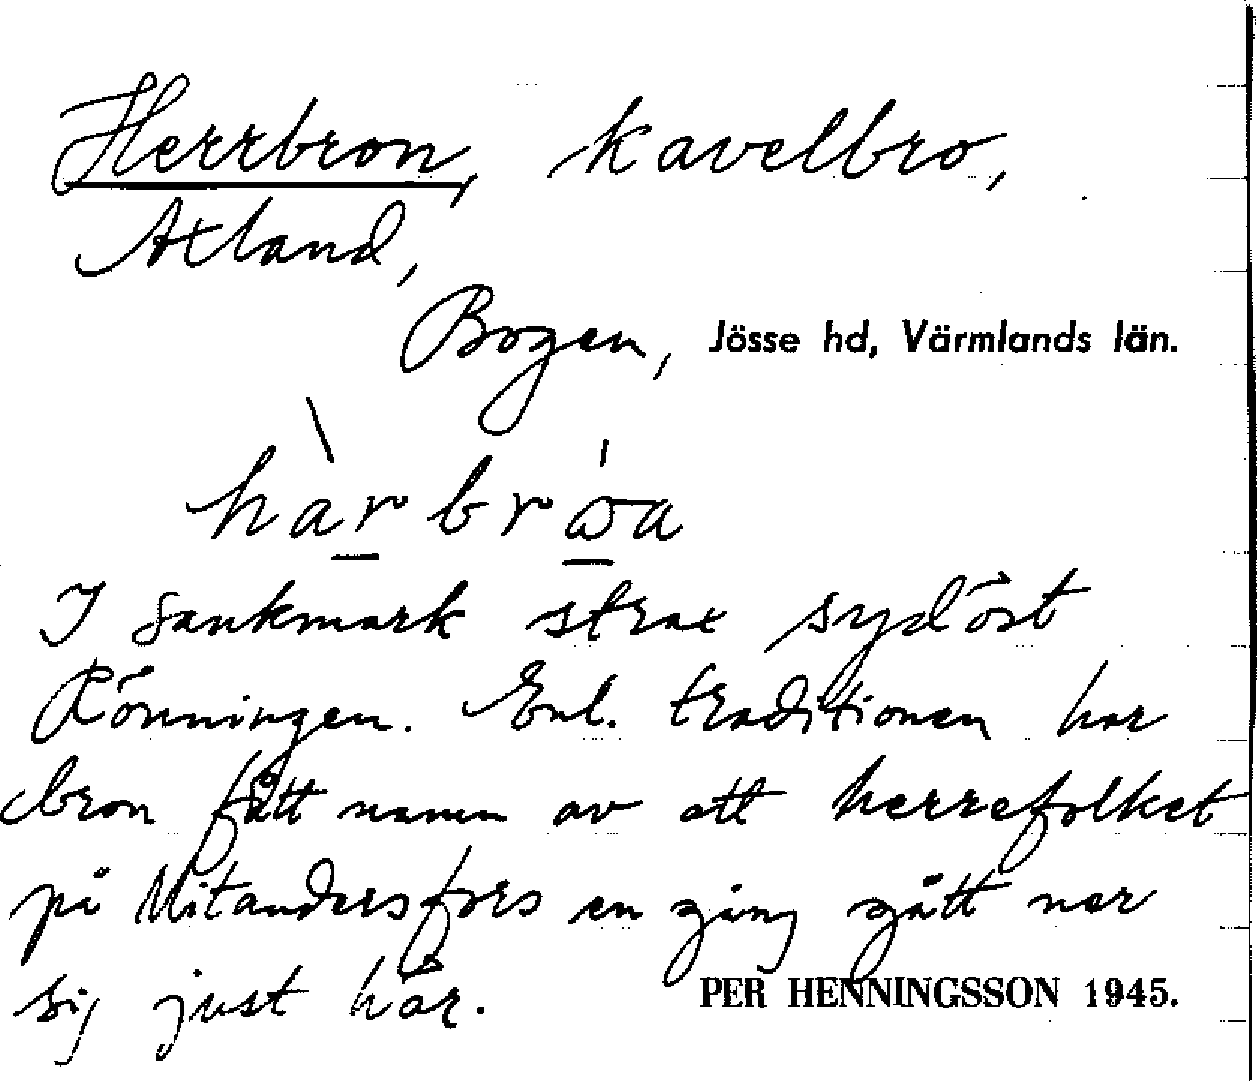 Herrbron, kavelbro,
Åtland,
Bogen, Jösse hd, Värmlands län.
hàrbróa
I sankmark strax sydöst
Rönningen. Enl. traditionen har
bron fått namn av att herrefolket
på Mitandersfors en gång gått ner
sig just här.
PER HENNINGSSON 1945.